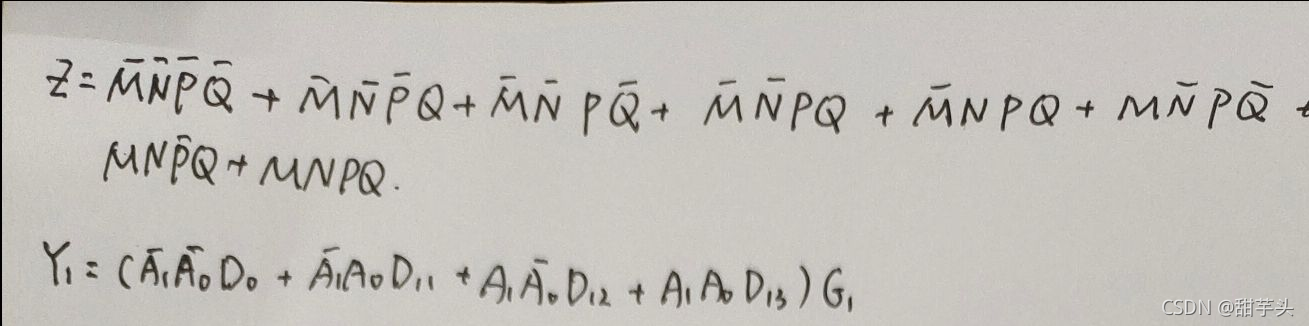 Z = M̄N̄P̄Q̄ + M̄N̄P̄Q + M̄N̄PQ̄ + M̄N̄PQ + M̄NPQ + MN̄PQ̄ +
MNP̄Q + MNPQ.
Y₁ = (Ā₁Ā₀D₀ + Ā₁A₀D₁₁ + A₁Ā₀D₁₂ + A₁A₀D₁₃)G₁
CSDN @甜芋头